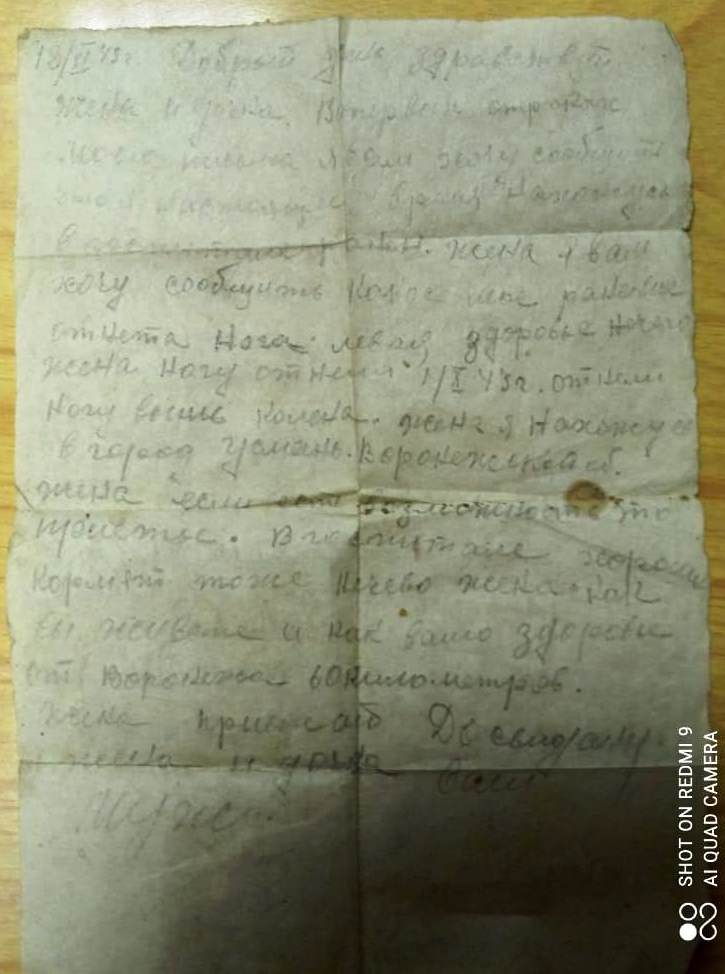 18/II 43 г. Добрый день здравствуй
жена и дочка. Вопервых строках
моего письма я вам хочу сообщить
что я настоящие время нахожусь
в госпитале жена я вам
хочу сообщить какое мне ранение
отнета нога левая, здоровье ничего
жена ногу отнели 1/II 43 г. отнели
ногу выше колена. жена я нахожус
в город Усмань. Воронежской об.
жена если ест возможность то
приежай. В госпитале хорошо
кормят тоже ничево жена как
вы живете и как ваше здоровье
от Воронежа 60 километров.
жена приежай До свидание
жена и дочка Ваш